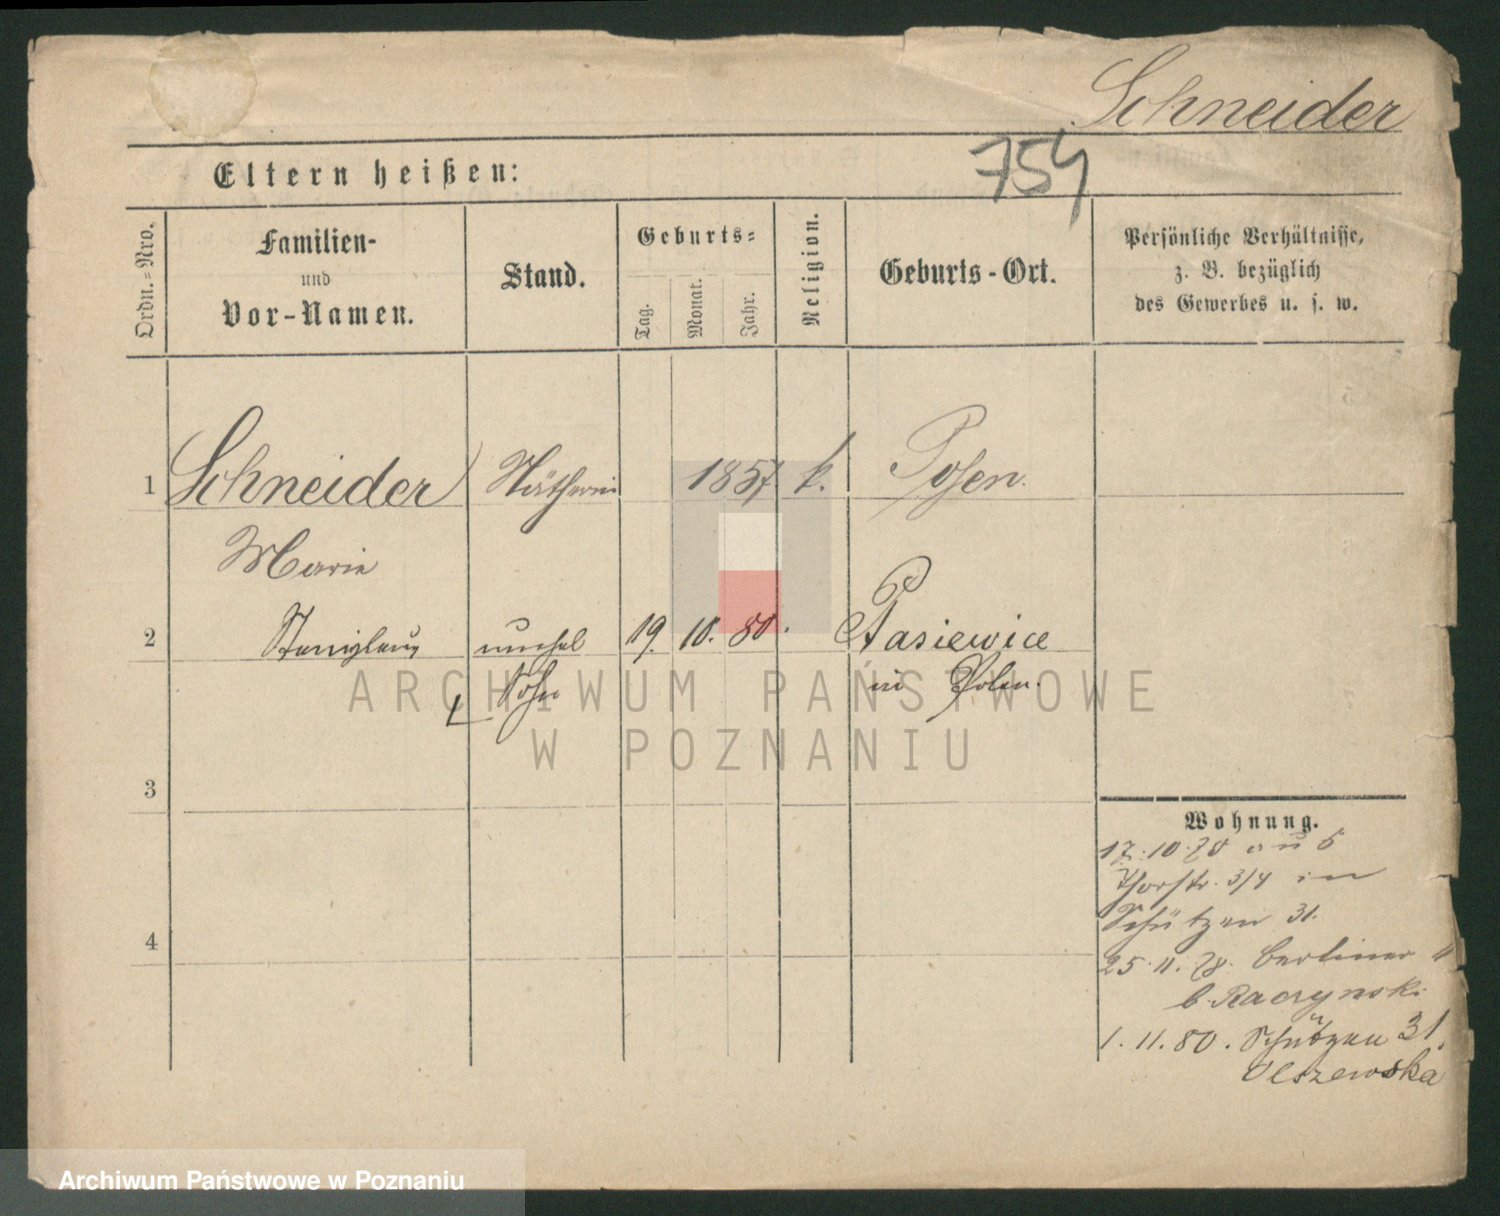 Schneider
Eltern heißen:
754
Ordn.-Nro.
Familien-
und
Vor-Namen.
Stand.
Geburts-
Tag.
Monat.
Jahr.
Religion.
Geburts-Ort.
Persönliche Verhältnisse,
z. B. bezüglich
des Gewerbes u. s. w.
1 Schneider Nätherin 1857 k. Posen.
Marie
2 Stanislaus unehel 19. 10. 80. Pasiewice
Sohn in Polen.
ARCHIWUM PAŃSTWOWE
W POZNANIU
3
4
Wohnung.
17.10.78 aus
Thorstr. 3/4 in
Schützen 31.
25.11.78. Berliner
b. Raczynski
1.11.80. Schützen 31.
Olszewska
Archiwum Państwowe w Poznaniu